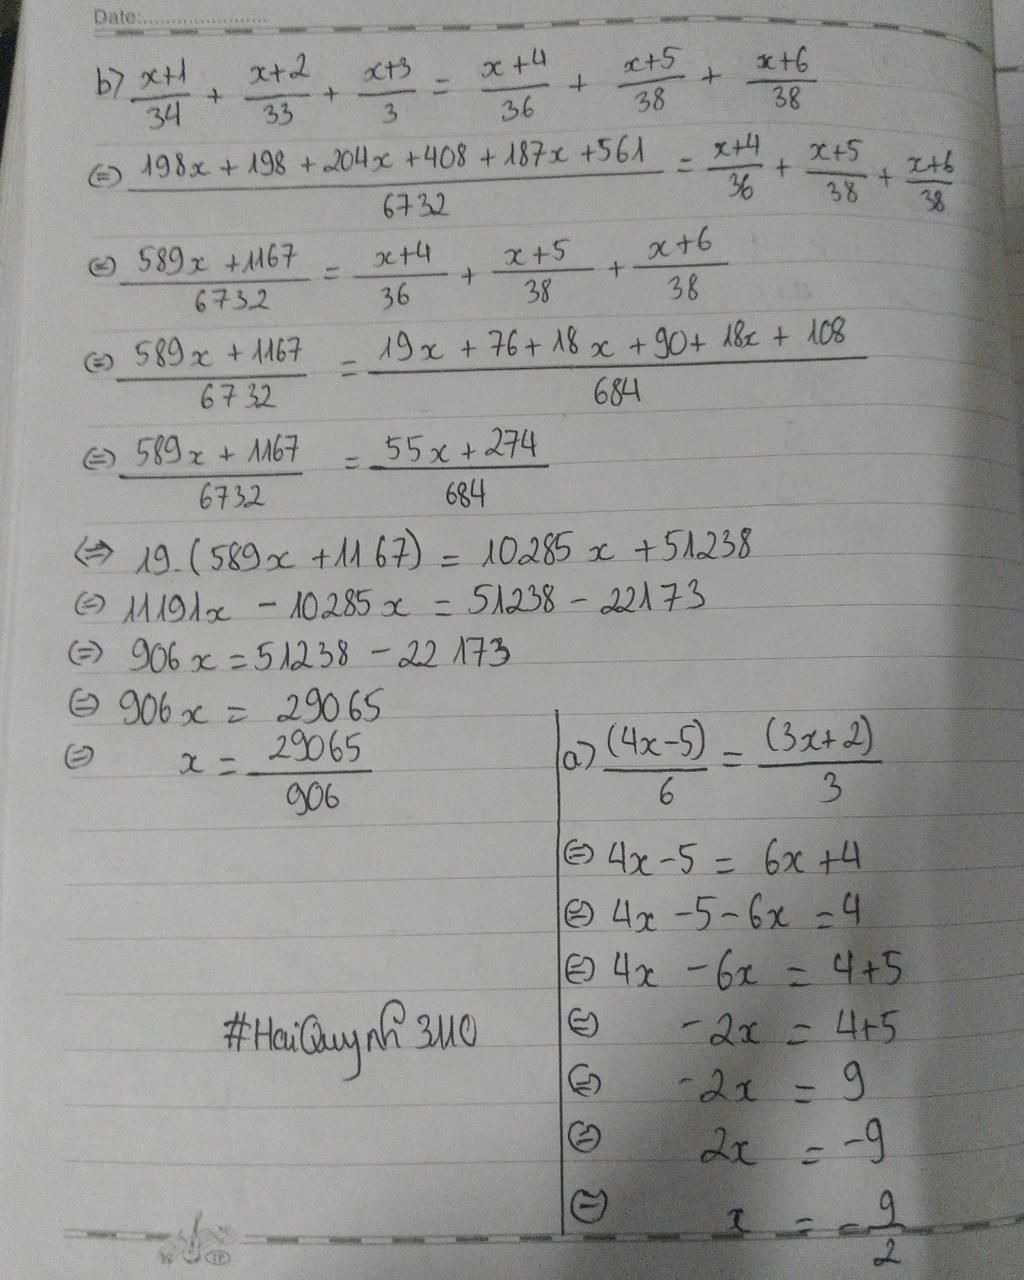 Date:
b) (x+1)/34 + (x+2)/33 + (x+3)/3 = (x+4)/36 + (x+5)/38 + (x+6)/38
(=) (198x + 198 + 204x + 408 + 187x + 561)/6732 = (x+4)/36 + (x+5)/38 + (x+6)/38
(=) (589x + 1167)/6732 = (x+4)/36 + (x+5)/38 + (x+6)/38
(=) (589x + 1167)/6732 = (19x + 76 + 18x + 90 + 18x + 108)/684
(=) (589x + 1167)/6732 = (55x + 274)/684
<=> 19.(589x + 1167) = 10285x + 51238
(=) 11191x - 10285x = 51238 - 22173
(=) 906x = 51238 - 22173
(=) 906x = 29065
(=) x = 29065/906
#HaiQuynh 3110
a) (4x-5)/6 = (3x+2)/3
(=) 4x - 5 = 6x + 4
(=) 4x - 5 - 6x = 4
(=) 4x - 6x = 4+5
(=) -2x = 4+5
(=) -2x = 9
(=) 2x = -9
(=) x = -9/2